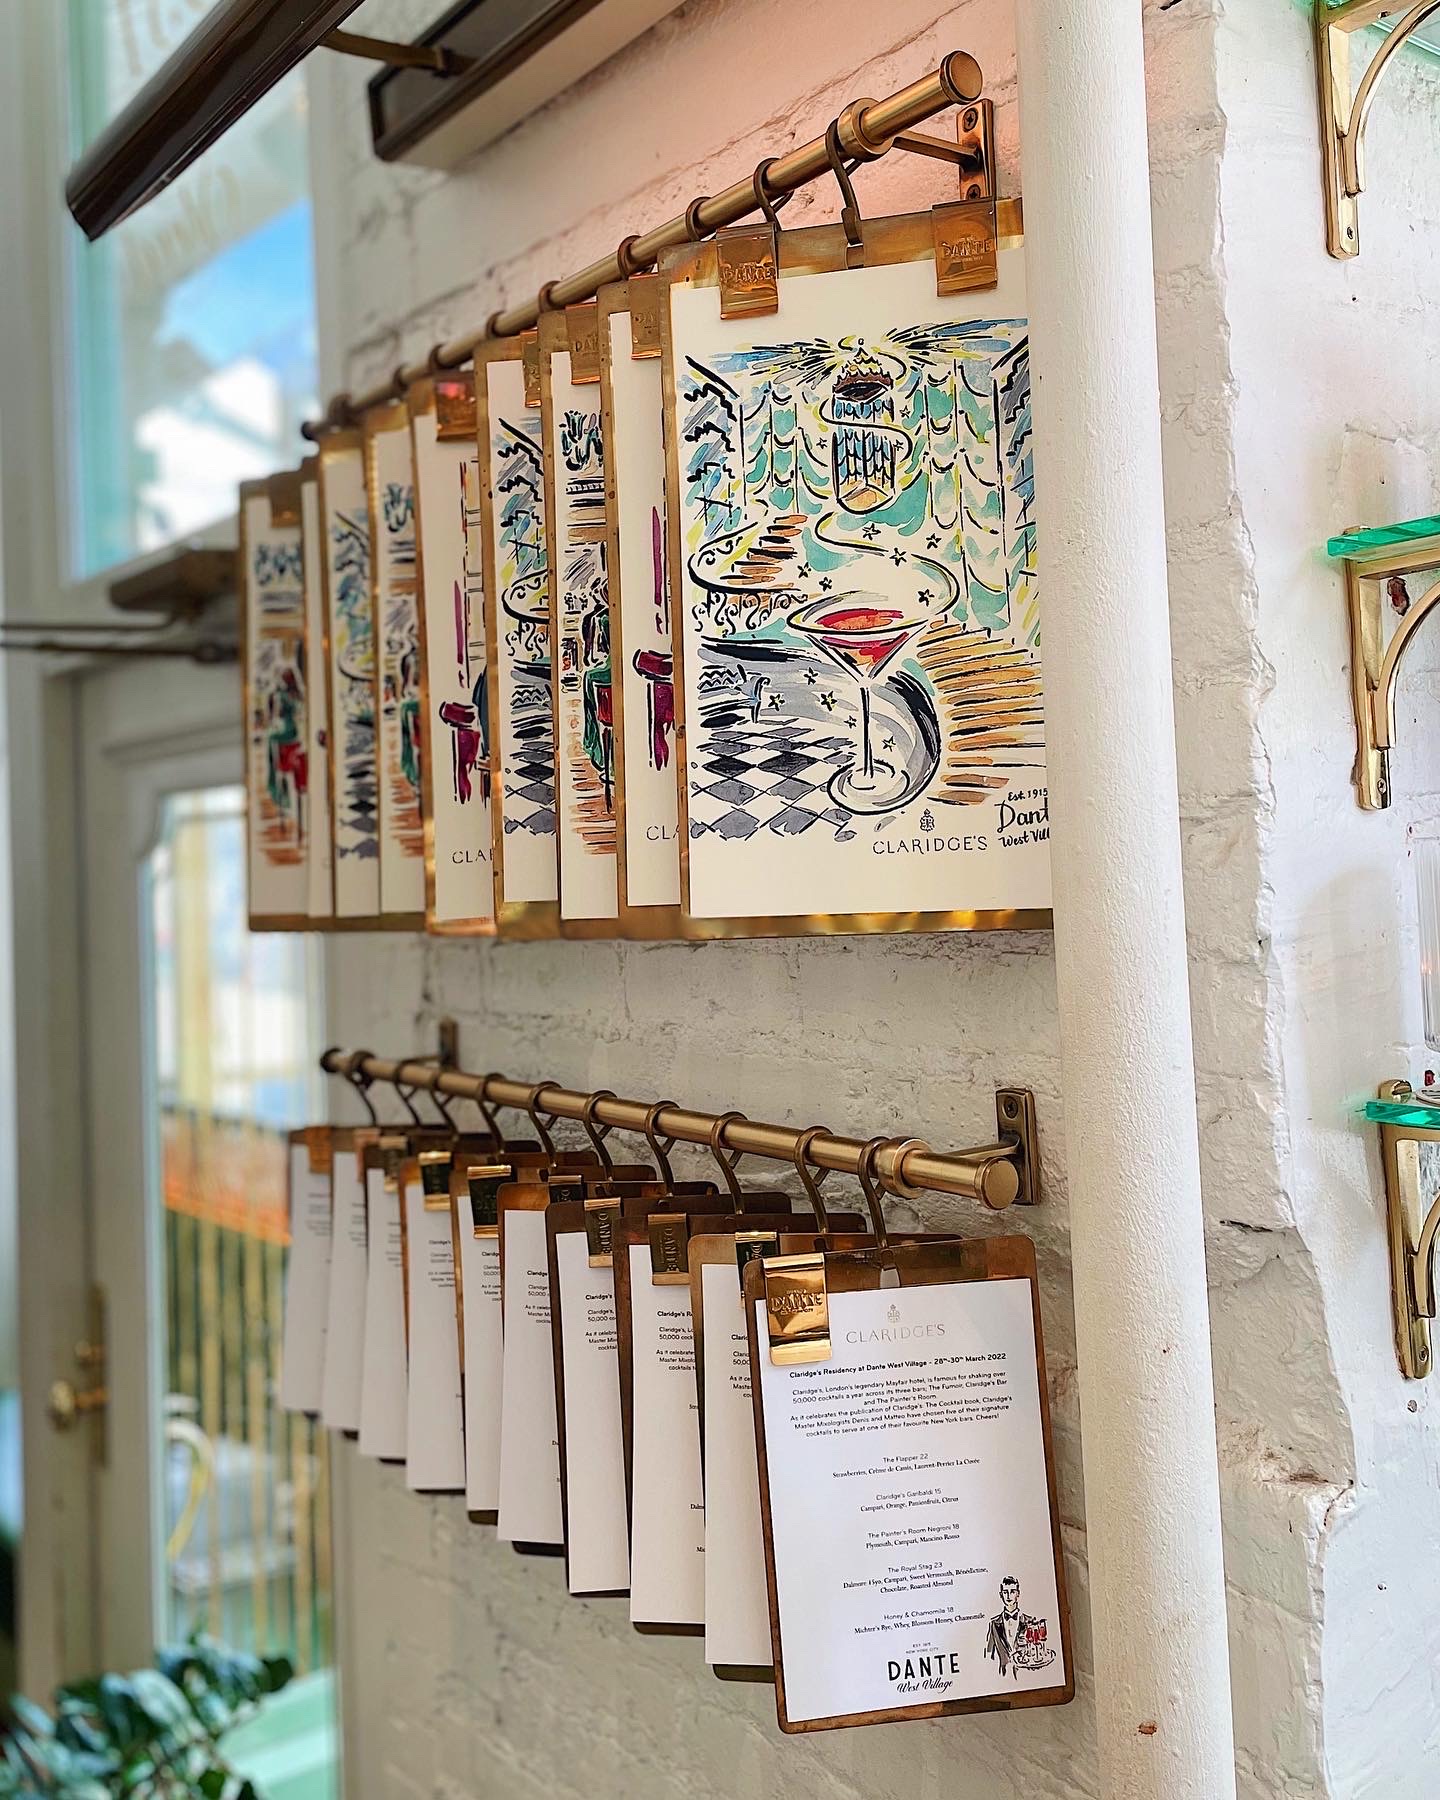 DANTE
DANTE
CLARIDGE'S
Est. 1915
Dant
West Vill
CLA
CLAR
DANTE
CLARIDGE'S
Claridge's Residency at Dante West Village - 28th-30th March 2022
Claridge's, London's legendary Mayfair hotel, is famous for shaking over
50,000 cocktails a year across its three bars; The Fumoir, Claridge's Bar
and The Painter's Room.
As it celebrates the publication of Claridge's: The Cocktail book, Claridge's
Master Mixologists Denis and Matteo have chosen five of their signature
cocktails to serve at one of their favourite New York bars. Cheers!
The Flapper 22
Strawberries, Crème de Cassis, Laurent-Perrier La Cuvée
Claridge's Garibaldi 15
Campari, Orange, Passionfruit, Citrus
The Painter's Room Negroni 18
Plymouth, Campari, Mancino Rosso
The Royal Stag 23
Dalmore 15yo, Campari, Sweet Vermouth, Bénédictine,
Chocolate, Roasted Almond
Honey & Chamomile 18
Michter's Rye, Whey, Blossom Honey, Chamomile
EST. 1915
NEW YORK CITY
DANTE
West Village